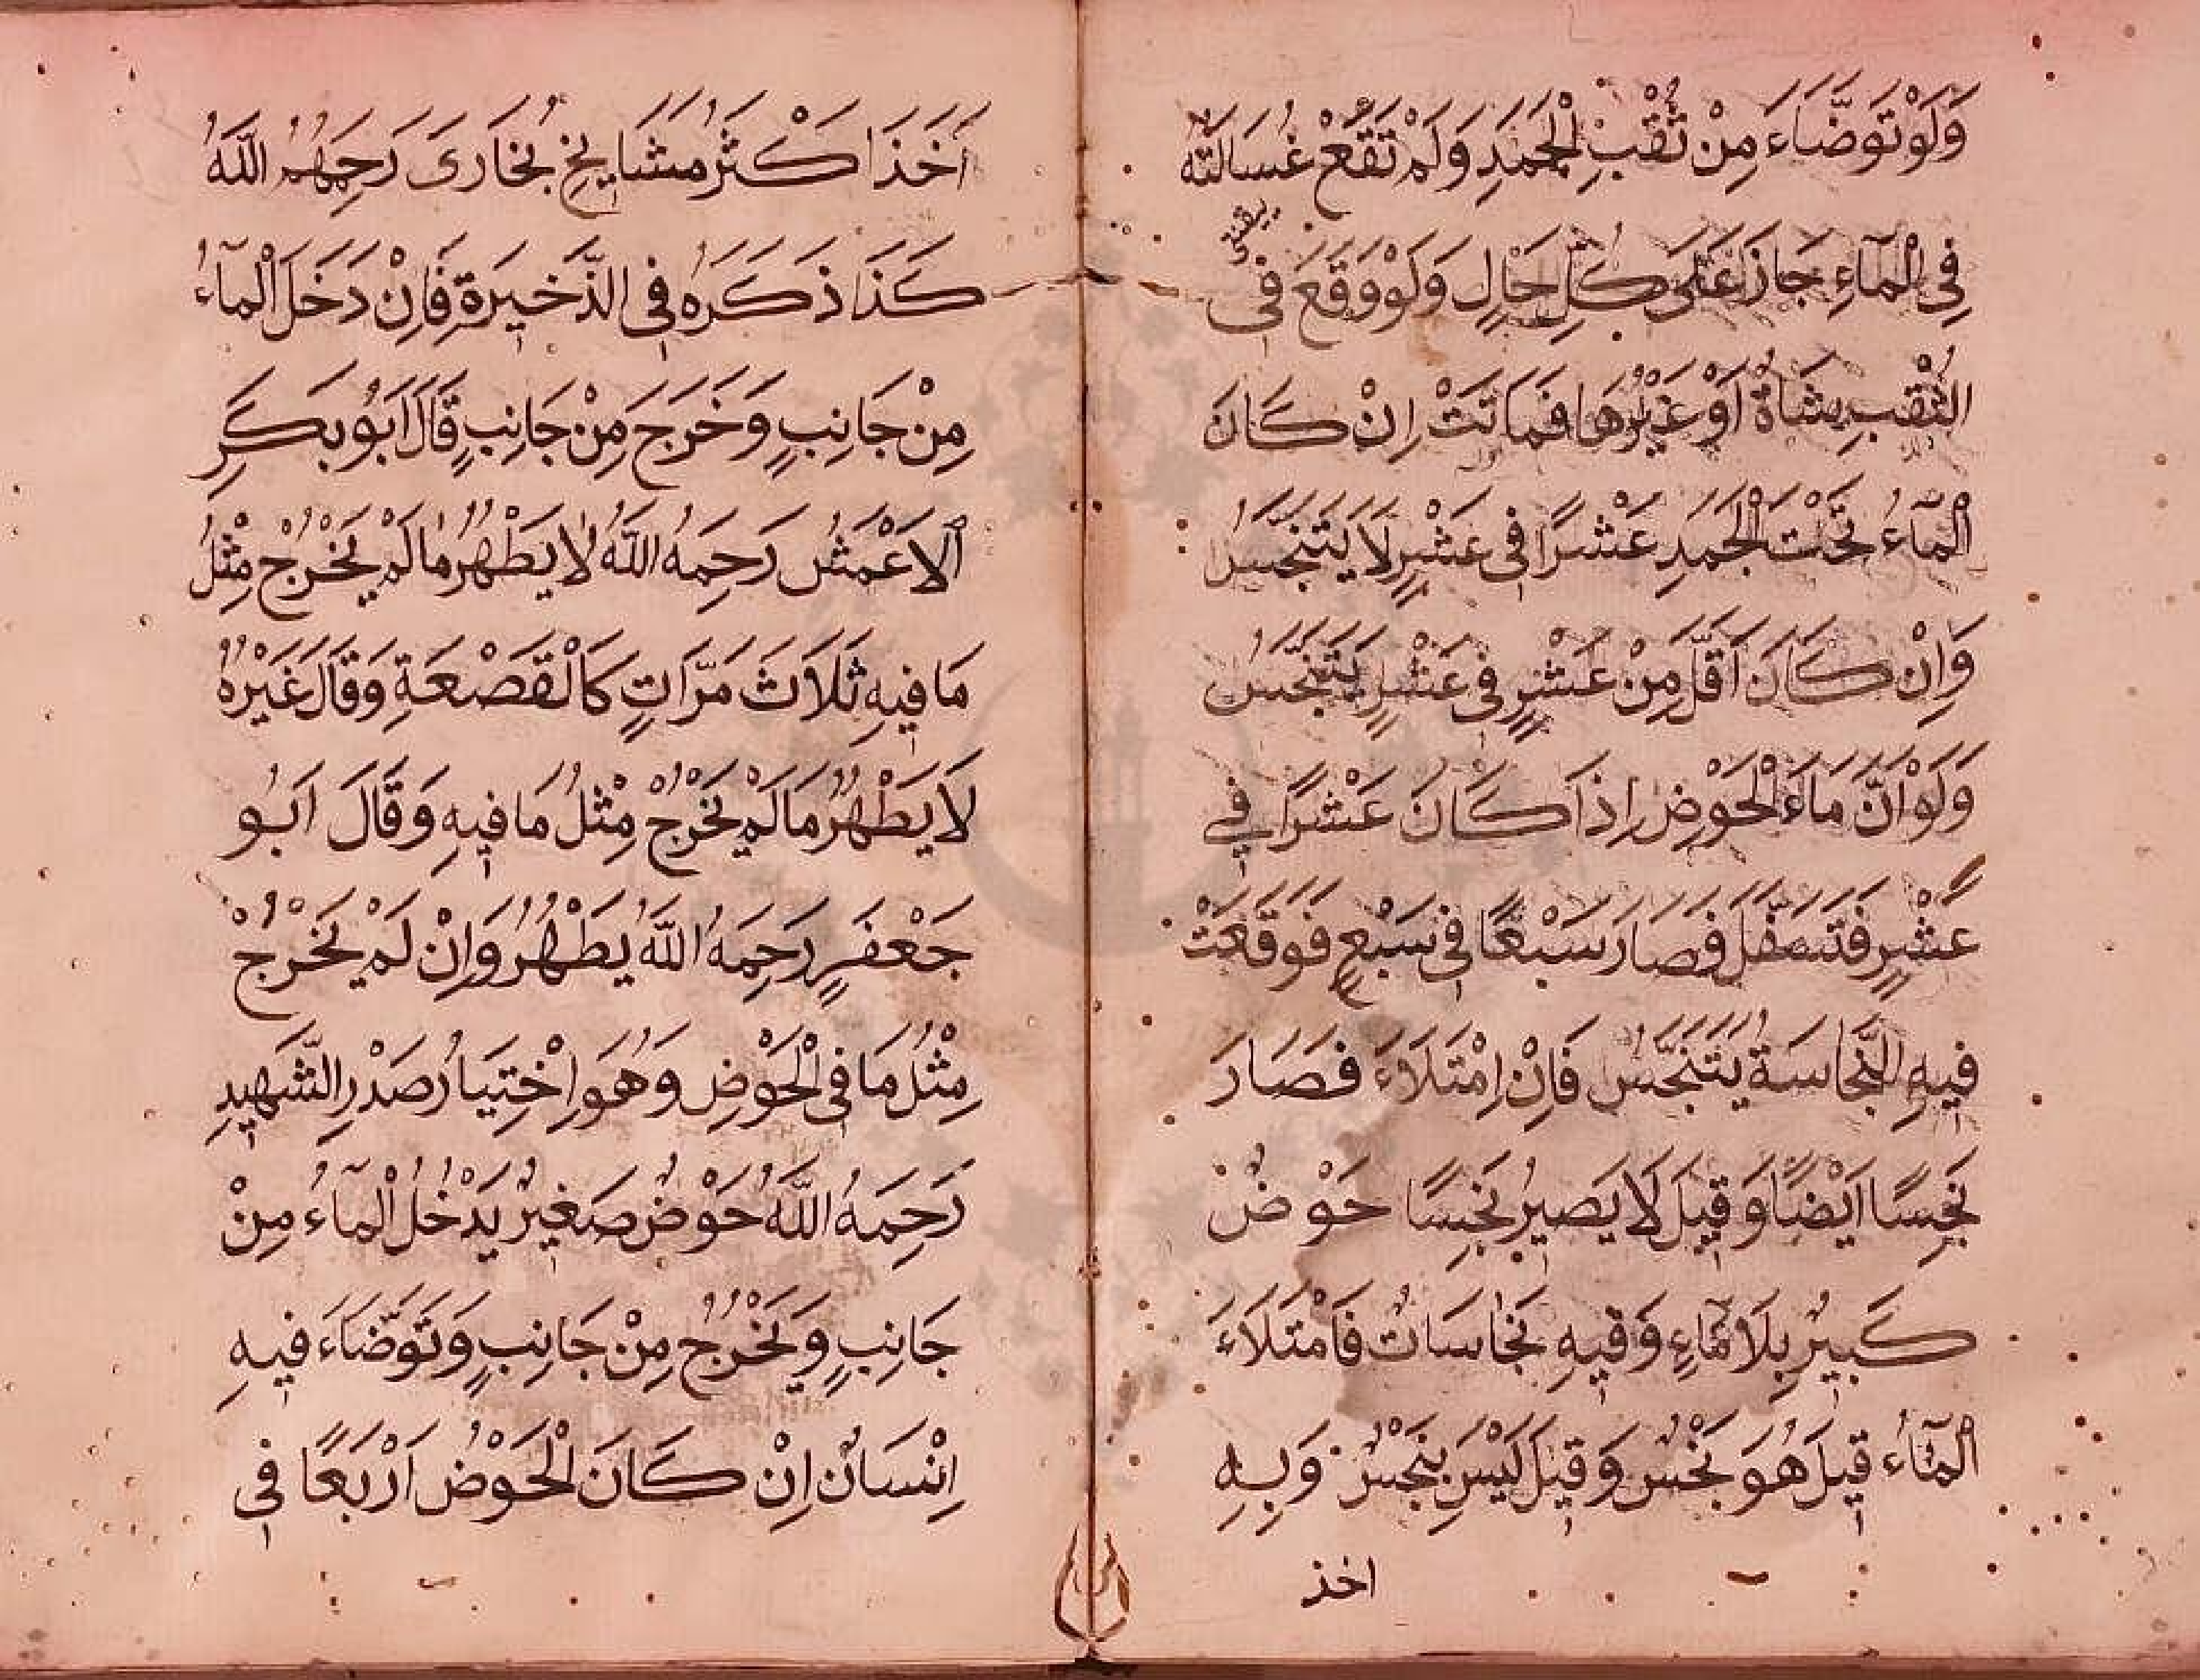 وَلَوْ تَوَضَّاءَ مِنْ ثُقْبِ الْجَمَدِ وَلَمْ تَقَعْ غُسَالَتُهُ
فِي الْمَآءِ جَازَ عَلَى كُلِّ حَالٍ وَلَوْ وَقَعَ فِي
الثُّقْبِ شَاةٌ اَوْ غَيْرُهَا فَمَاتَتْ اِنْ كَانَ
الْمَآءُ تَحْتَ الْجَمَدِ عَشْرًا فِي عَشْرٍ لَا يَتَنَجَّسُ
وَاِنْ كَانَ اَقَلَّ مِنْ عَشْرٍ فِي عَشْرٍ يَتَنَجَّسُ
وَلَوْ اَنَّ مَاءَ الْحَوْضِ اِذَا كَانَ عَشْرًا فِي
عَشْرٍ فَتَسَفَّلَ فَصَارَ سَبْعًا فِي سَبْعٍ فَوَقَعَتْ
فِيهِ النَّجَاسَةُ يَتَنَجَّسُ فَاِنْ اِمْتَلَاَءَ فَصَارَ
نَجِسًا اَيْضًا وَقِيلَ لَا يَصِيرُ نَجِسًا حَوْضٌ
كَبِيرٌ بِلَا مَآءٍ وَفِيهِ نَجَاسَاتٌ فَامْتَلَاَءَ
الْمَآءُ قِيلَ هُوَ نَجْسٌ وَقِيلَ لَيْسَ بِنَجْسٍ وَبِهِ
اخذ
اَخَذَ اَكْثَرُ مَشَايِخِ بُخَارَى رَحِمَهُمُ اللّٰهُ
كَذَا ذَكَرَهُ فِي الذَّخِيرَةِ فَاِنْ دَخَلَ الْمَآءُ
مِنْ جَانِبٍ وَخَرَجَ مِنْ جَانِبٍ قَالَ اَبُو بَكَرِ
الْاَعْمَشُ رَحِمَهُ اللّٰهُ لَا يَطْهُرُ مَا لَمْ يَخْرُجْ مِثْلُ
مَا فِيهِ ثَلَاثَ مَرَّاتٍ كَالْقَصْعَةِ وَقَالَ غَيْرُهُ
لَا يَطْهُرُ مَا لَمْ يَخْرُجْ مِثْلُ مَا فِيهِ وَقَالَ اَبُو
جَعْفَرٍ رَحِمَهُ اللّٰهُ يَطْهُرُ وَاِنْ لَمْ يَخْرُجْ
مِثْلُ مَا فِي الْحَوْضِ وَهُوَ اِخْتِيَارُ صَدْرِ الشَّهِيدِ
رَحِمَهُ اللّٰهُ حَوْضٌ صَغِيرٌ يَدْخُلُ الْمَآءُ مِنْ
جَانِبٍ وَيَخْرُجُ مِنْ جَانِبٍ وَتَوَضَّاءَ فِيهِ
اِنْسَانٌ اِنْ كَانَ الْحَوْضُ اَرْبَعًا فِي